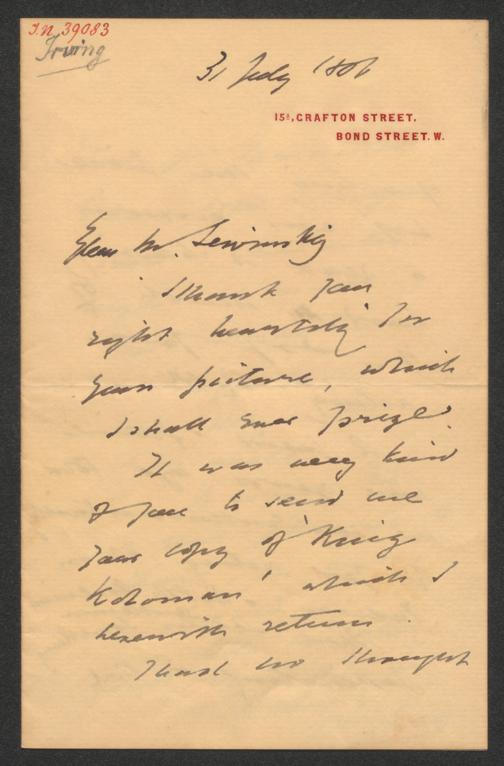 I.N. 39083
Irving
31 July 188
15A, GRAFTON STREET.
BOND STREET. W.
Dear Mr. Lewinsky
Thank you
right heartily for
your picture, which
I shall ever prize.
It was very kind
of you to send me
your copy of 'King
Koloman' which I
herewith return.
I had no thought